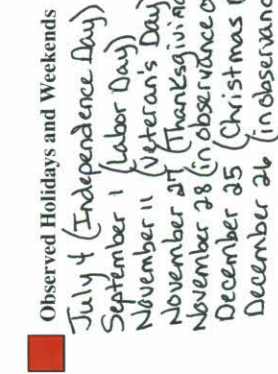 Observed Holidays and Weekends
July 4 (Independence Day)
September 1 (Labor Day)
November 11 (Veteran's Day
November 27 (Thanksgiving
November 28 (in observance o
December 25 (Christmas
December 26 (in observanc